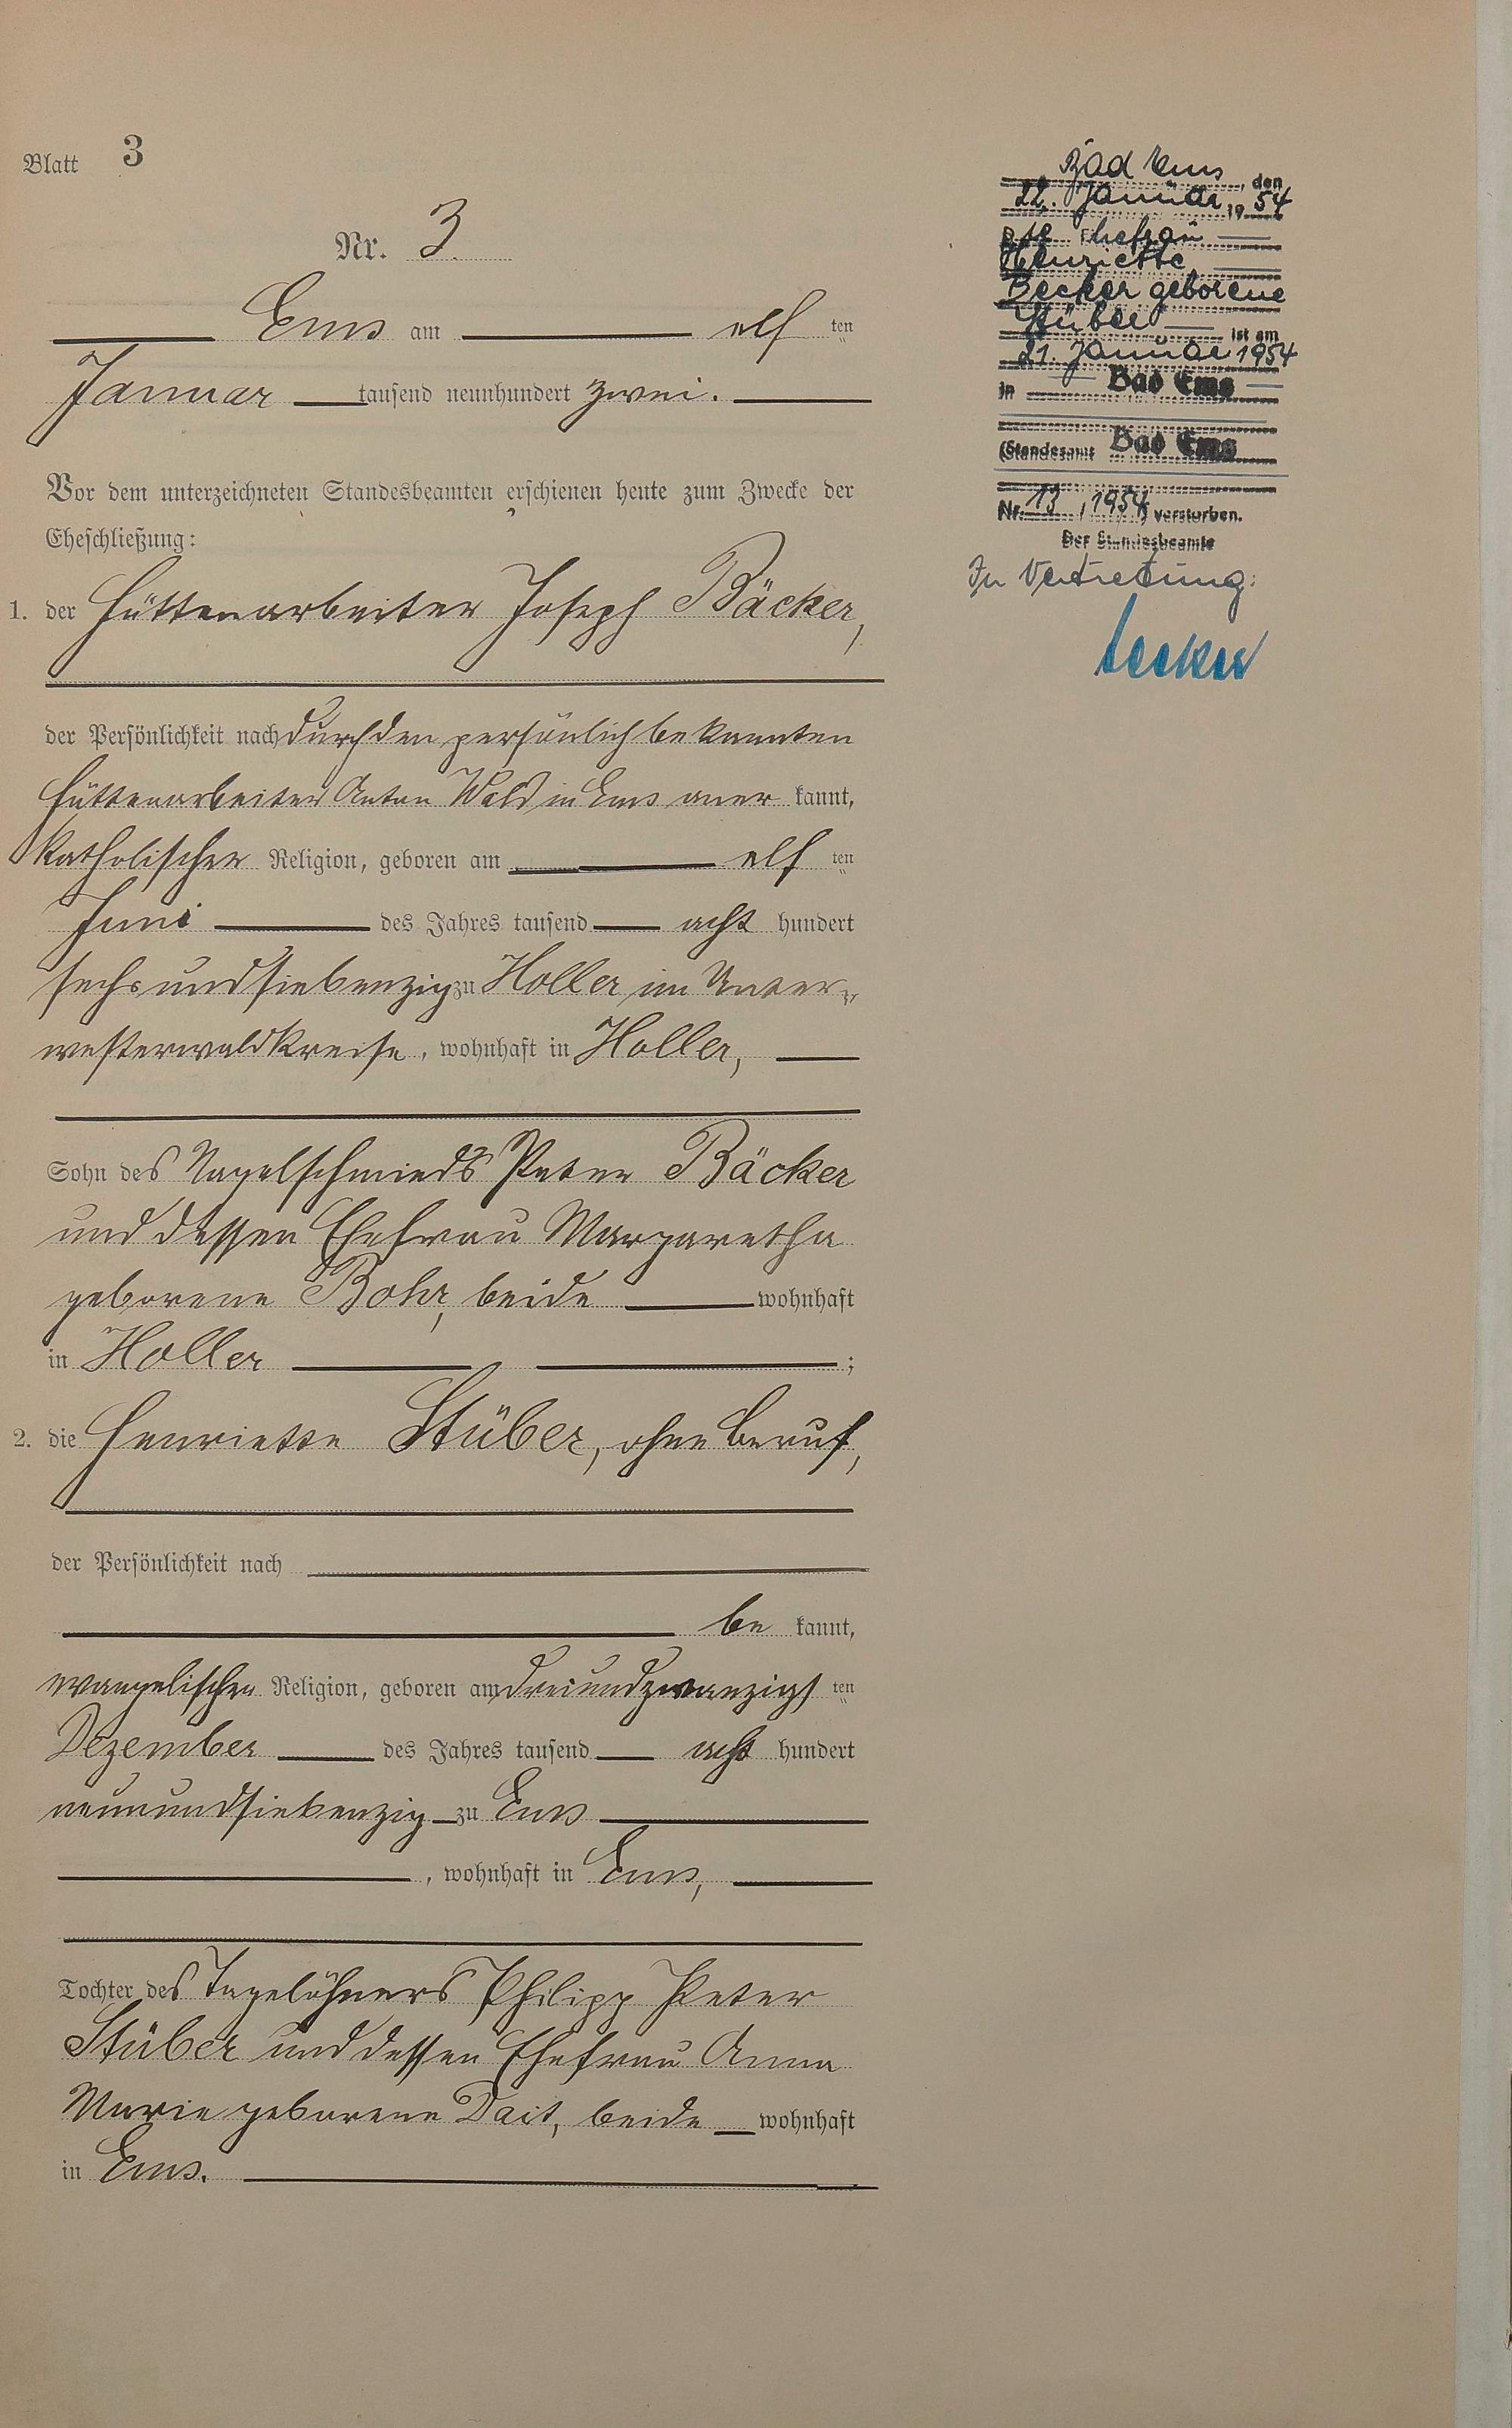 Blatt 3
Nr. 3.
Ems am elf ten
Januar tausend neunhundert zwei.
Vor dem unterzeichneten Standesbeamten erschienen heute zum Zwecke der
Eheschließung:
1. der Hüttenarbeiter Joseph Bäcker,
der Persönlichkeit nach durch den persönlich bekannten
Hüttenarbeiter Anton Wald in Ems aner kannt,
katholischer Religion, geboren am elf ten
Juni des Jahres tausend acht hundert
sechsundsiebenzig zu Holler im Unter-
westerwaldkreise, wohnhaft in Holler,
Sohn des Nagelschmieds Peter Bäcker
und dessen Ehefrau Margaretha
geborene Bohr, beide wohnhaft
in Holler ;
2. die Henriette Stüber, ohne Beruf,
der Persönlichkeit nach
be kannt,
evangelischer Religion, geboren am dreiundzwanzigs ten
Dezember des Jahres tausend acht hundert
neunundsiebenzig zu Ems
, wohnhaft in Ems,
Tochter des Tagelöhners Philipp Peter
Stüber und dessen Ehefrau Anna
Marie geborene Dait, beide wohnhaft
in Ems.
Bad Ems, den
22. Januar 1954
Die Ehefrau
Henriette
Becker geborene
Stüber ist am
21. Januar 1954
in Bad Ems
(Standesamt Bad Ems
Nr. 13, 1954) verstorben.
Der Standesbeamte
In Vertretung: